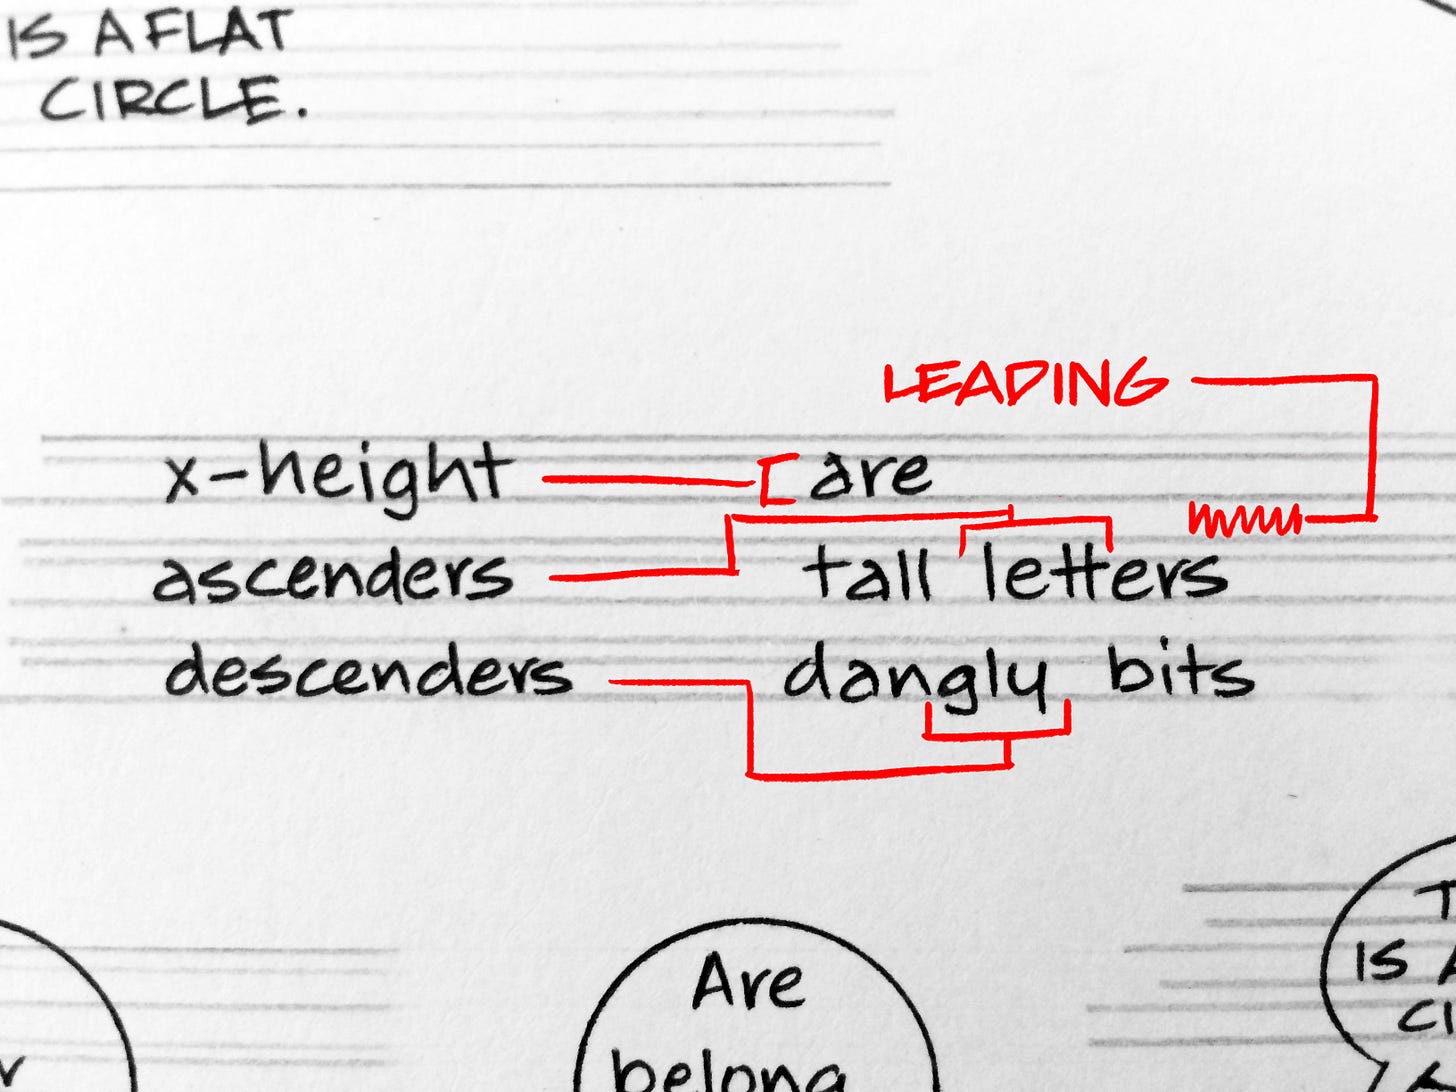 IS A FLAT
CIRCLE.
LEADING
x-height are
ascenders tall letters
descenders dangly bits
Are
belong
IS